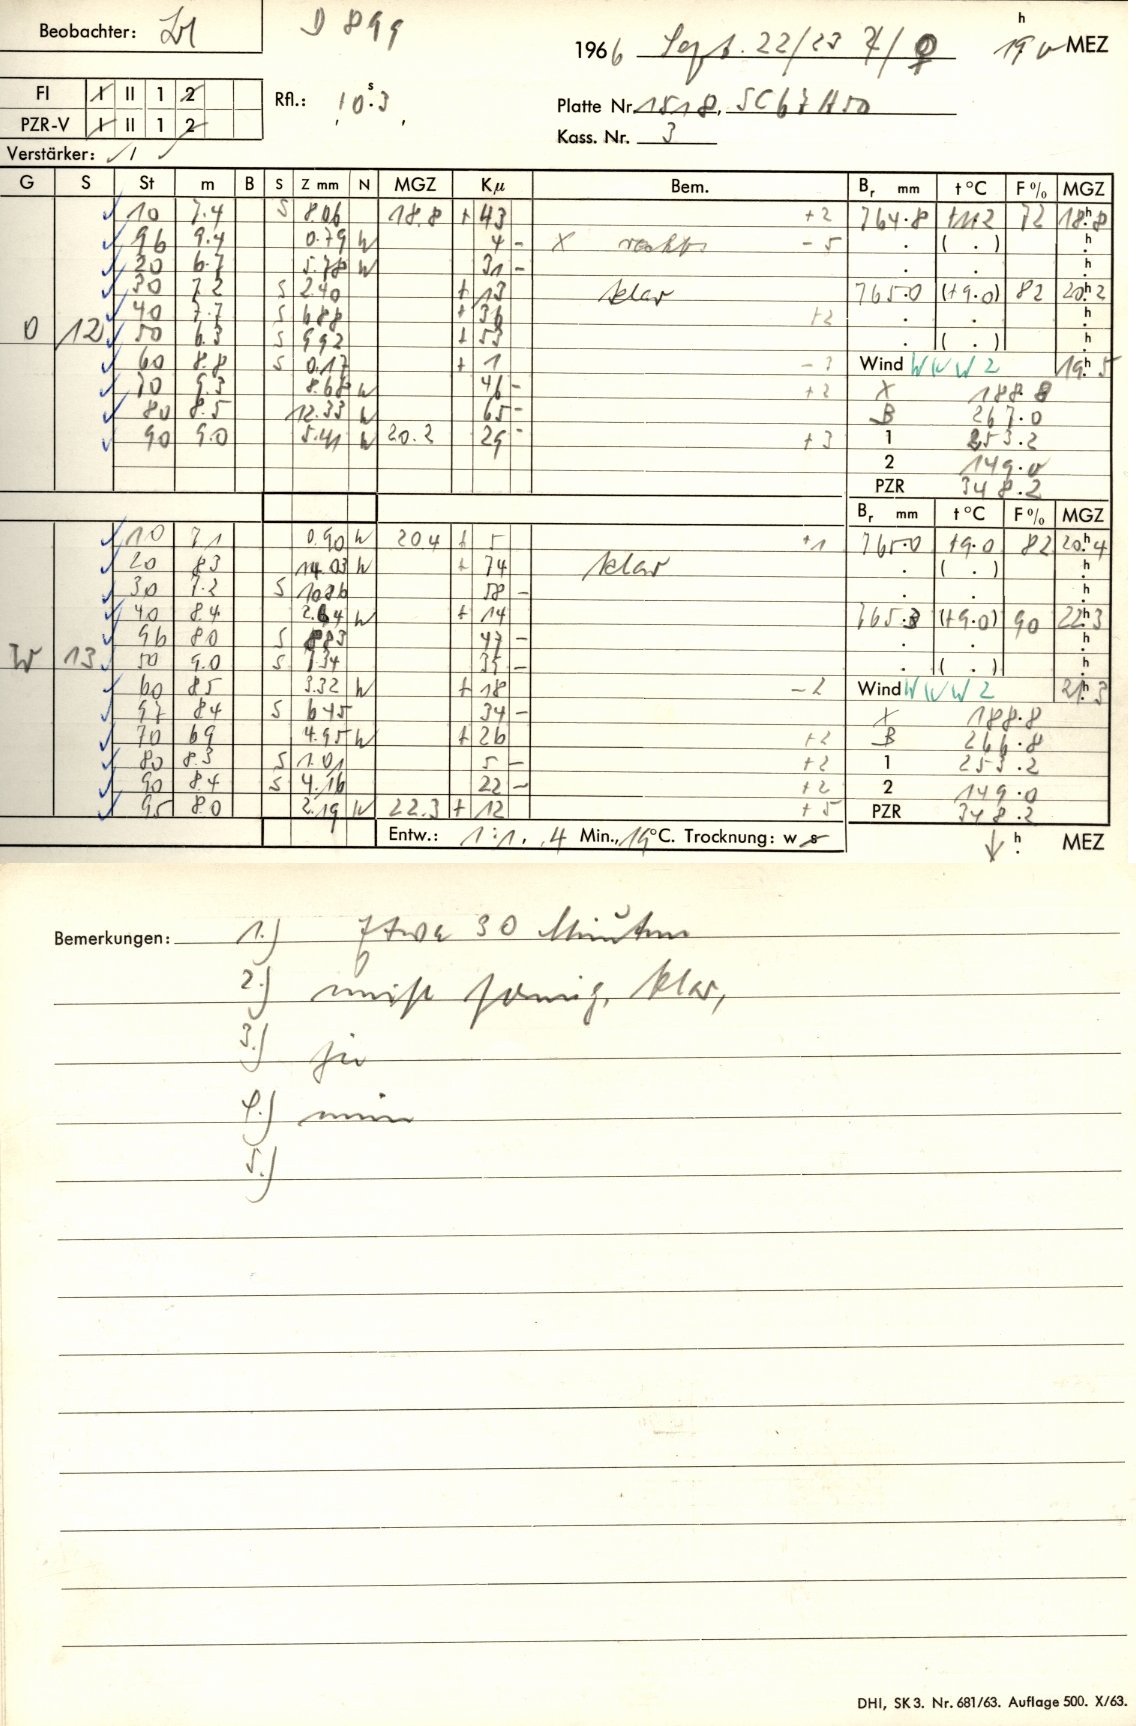 Beobachter:
D 899
1966 Sept. 22/23 ♃/♀ 19 0 h MEZ
FI I II 1 2
Rfl.: 10 s. 3
Platte Nr. 1518, SC67H50
PZR-V I II 1 2
Kass. Nr. 3
Verstärker: √ 1 √
G S St m B S Z mm N MGZ Kµ Bem. Br mm t °C F % MGZ
√ 10 7.4 S 8.06 18.8 + 43 +2 764.8 +11.2 72 18h.8
√ 96 9.4 0.79 N 4 - X rechts - 5 . ( . ) h.
√ 20 6.7 5.78 N 31 - . . h.
√ 30 7.2 S 2.40 + 13 klar 765.0 (+9.0) 82 20h.2
√ 40 7.7 S 6.88 + 36 +2 . . h.
O 12 √ 50 6.3 S 9.92 + 53 . ( . ) h.
√ 60 8.8 S 0.17 + 1 - 3 Wind WNW 2 19h.5
√ 70 9.3 8.68 N 46 - +2 X 188.8
√ 80 8.5 12.33 N 65 - B 267.0
√ 90 9.0 5.41 N 20.2 29 - +3 1 253.2
2 149.0
PZR 348.2
Br mm t °C F % MGZ
√ 10 7.1 0.90 N 20.4 + 5 +1 765.0 +9.0 82 20h.4
√ 20 8.3 14.03 N + 74 klar . ( . ) h.
√ 30 7.2 S 10.86 58 - . . h.
√ 40 8.4 2.64 N + 14 765.3 (+9.0) 90 22h.3
√ 96 8.0 S 8.83 47 - . . h.
W 13 √ 50 9.0 S 7.34 35 - . ( . ) h.
√ 60 8.5 3.32 N + 18 - 2 Wind WNW 2 21h.3
√ 97 8.4 S 6.45 34 - X 188.8
√ 70 6.9 4.95 N + 26 +2 B 266.8
√ 80 8.3 S 1.01 5 - +2 1 253.2
√ 90 8.4 S 4.16 22 - +2 2 149.0
√ 95 8.0 2.19 N 22.3 + 12 +5 PZR 348.2
Entw.: 1:1, 4 Min., 19°C. Trocknung: w s ↓ h. MEZ
Bemerkungen: 1.) Etwa 30 Minuten
2.) klar,
3.)
4.) nein
5.)
DHI, SK 3. Nr. 681/63. Auflage 500. X/63.